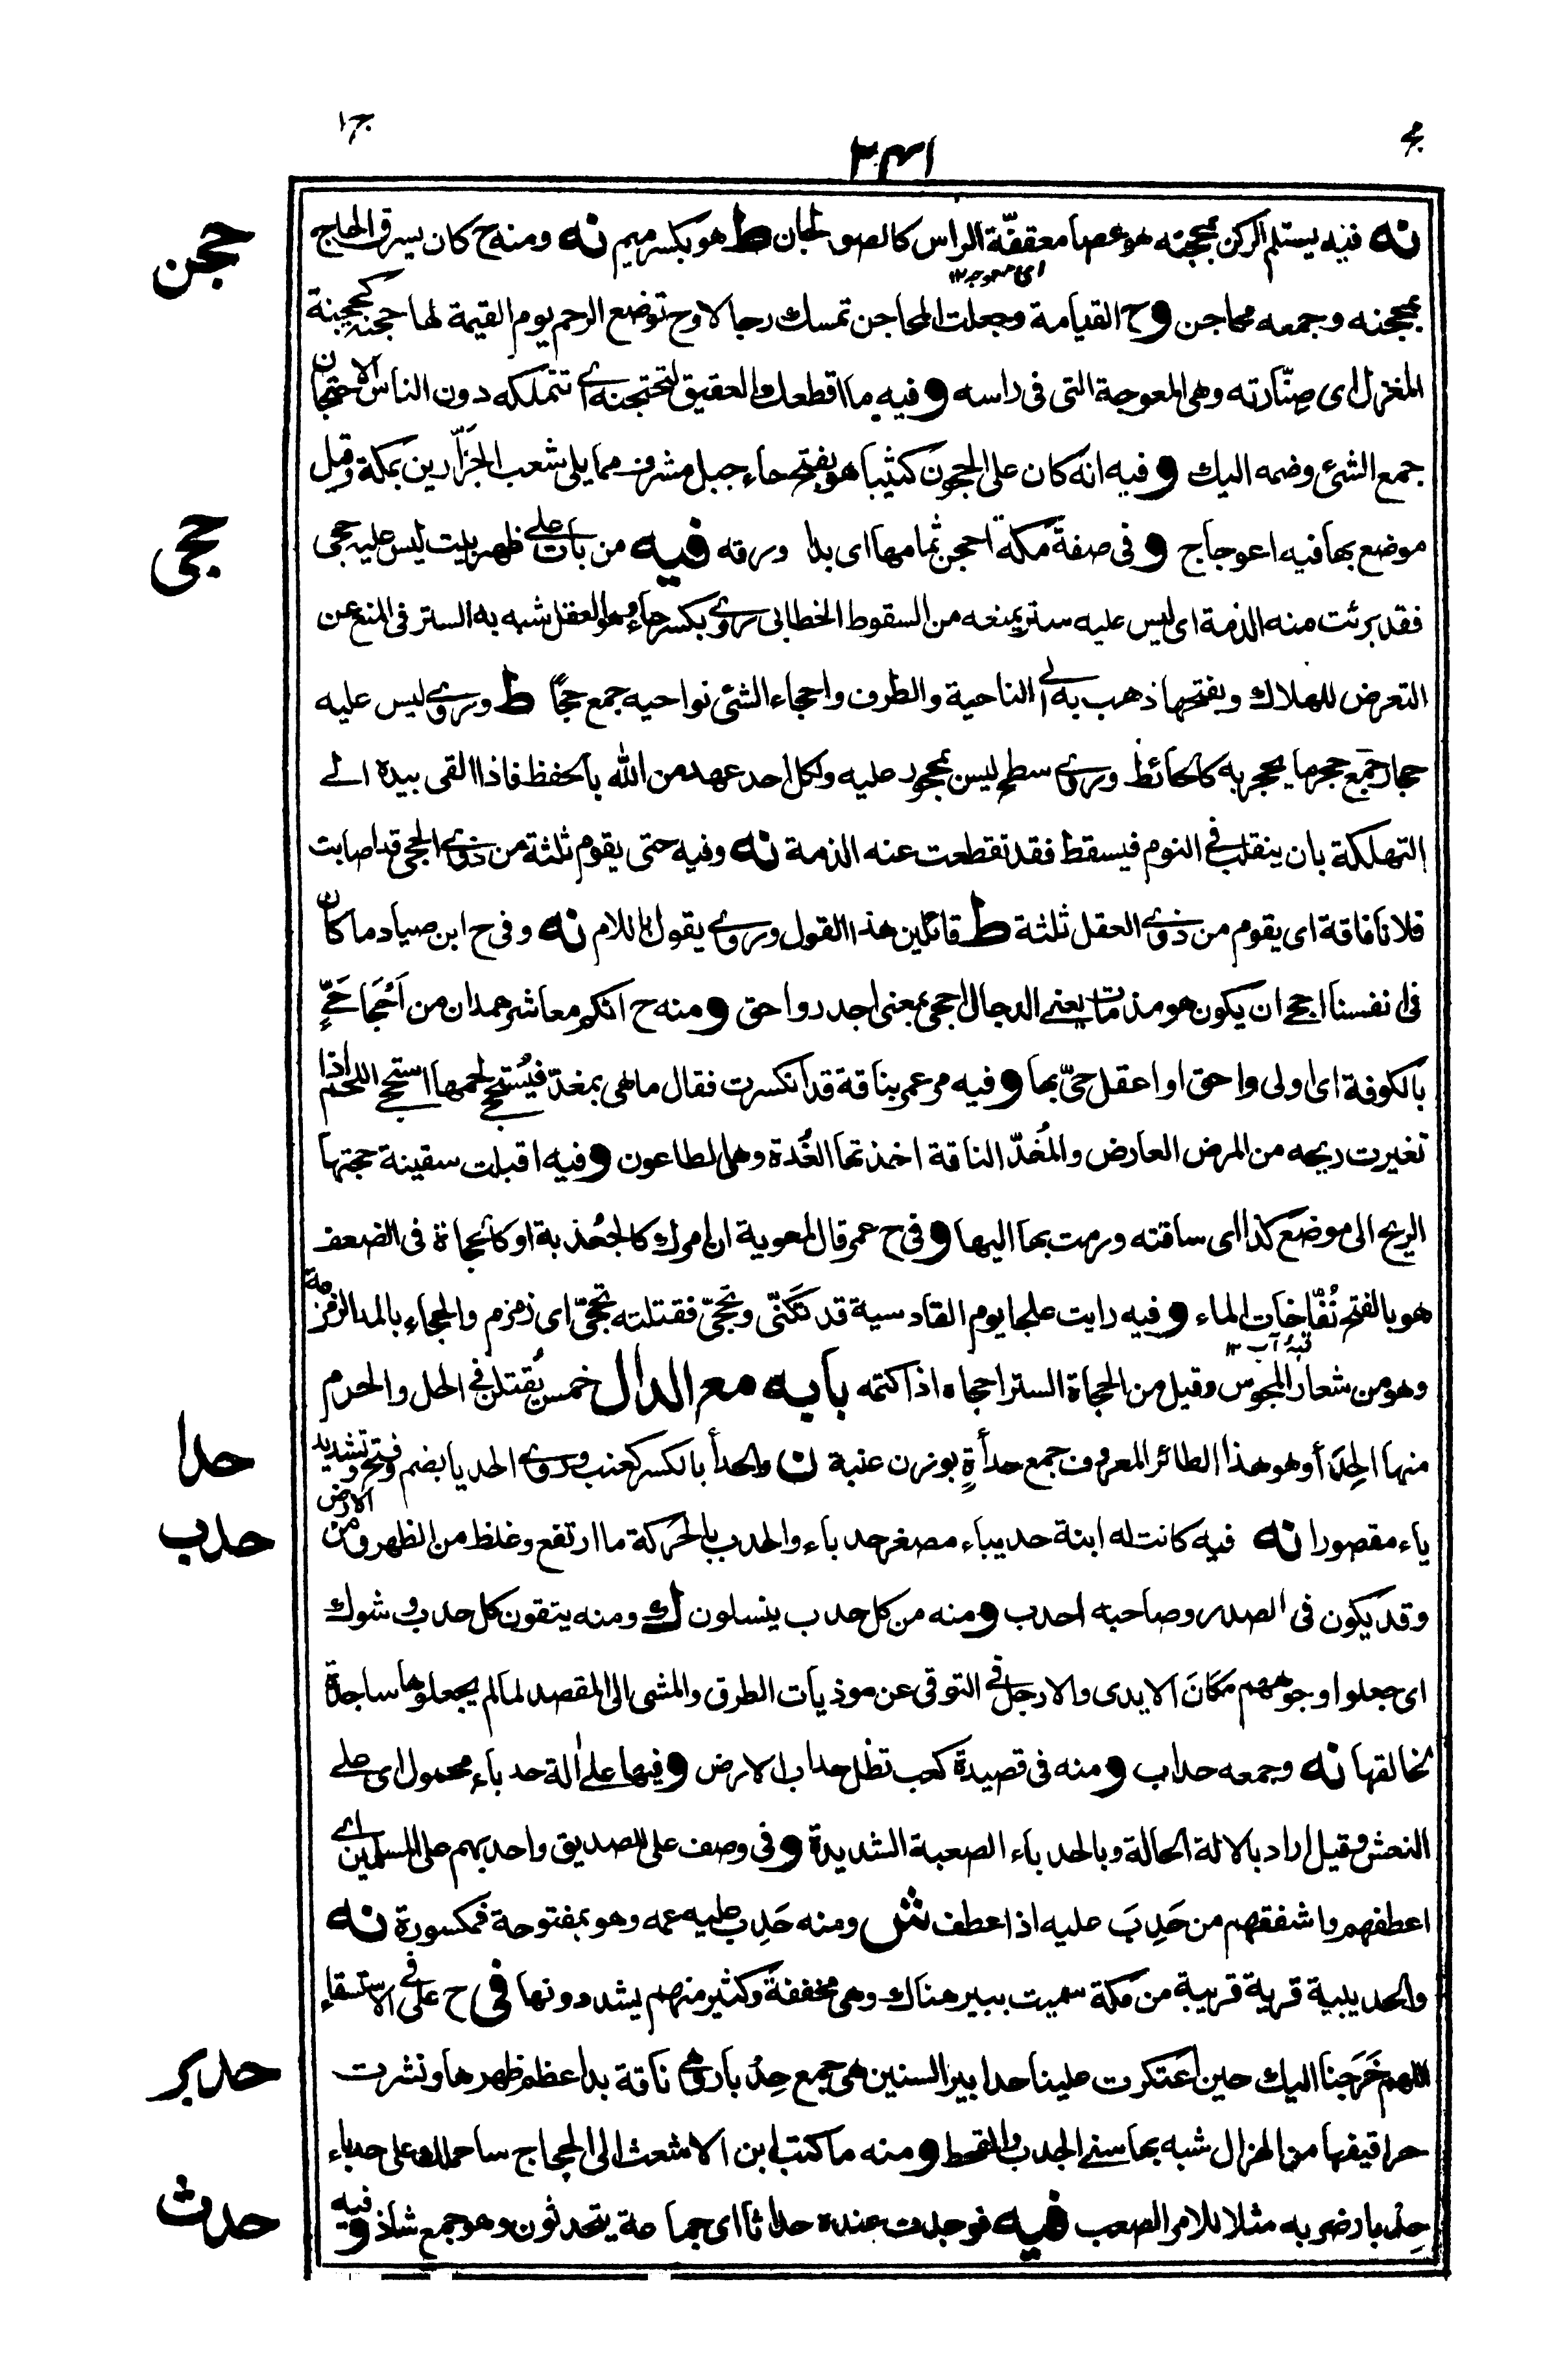 ج١
٢٤١
نه فيه يستلم الركن بمحجنه هو عصا معقفة الراس كالصولجان ط هو بكسر ميم نه ومنه ح كان يسرق الحاج
حجن
بمحجنه وجمعه محاجن و ح القيامة وجعلت المحاجن تمسك رجالا وح توضع الرحم يوم القيمة لها حجنة كحجنة
المغزل اى صنّارته وهى المعوجة التى فى راسه وفيه ما اقطعك العقيق لتحتجنه اے تتملكه دون الناس الاحتجان
جمع الشئ وضمه اليك وفيه انه كان على الحجون كئيبا هو بفتح حاء جبل مشرف مما يلى شعب الجزّارين بمكة وقيل
موضع بها فيه اعوجاج وفى صفة مكة احجن ثمامها اى بدا ورقه فيه من بات علے ظهر بيت ليس عليه حجى
حجى
فقد برئت منه الذمة اى ليس عليه ستر يمنعه من السقوط الخطابى وروے بكسر حاء وهو العقل شبه به الستر فى المنع عن
التعرض للهلاك وبفتحها ذهب به الے الناحية والطرف واحجاء الشئ نواحيه جمع حجًا ط وروے ليس عليه
حجار جمع حجر ما يحجر به كالحائط وروے سطح ليس بمحجور عليه ولكل احد عهد من الله بالحفظ فاذا القى بيده الے
التهلكة بان ينقلب فے النوم فيسقط فقد تقطعت عنه الذمة نه وفيه حتى يقوم ثلثة من ذوے الحجى قد اصابت
فلانا فاقة اى يقوم من ذوے العقل ثلثة ط قائلين هذا القول وروے يقول باللام نه وفى ح ابن صياد ما كان
فى انفسنا احجے ان يكون هو مذ مات يعنے الدجال احجى بمعنى اجدر واحق ومنه ح انكم معاشر همدان من اَحْجَا حَىٍّ
بالكوفة اى اولى واحق او اعقل حىّ بها وفيه مر عمر بناقة قد انكسرت فقال ما هى بمغدّ فيُستحجے لحمها استحجے اللحم اذا
تغيرت ريحه من المرض العارض والمُغدّ الناقة اخذتها الغُدة وهى الطاعون وفيه اقبلت سفينة حجتها
الريح الى موضع كذا اى ساقته ورمت بها اليها وفى ح عمر قال لمعوية ان امرك كالجُعدبة او كالحجاة فى الضعف
هو بالفتح نُفّاخات الماء وفيه رايت علجا يوم القادسية قد تكَنّى وتحجّى فقتلته تحجّى اى زمزم والحجاء بالمد الزمزمة
وهو من شعار المجوس وقيل من الحجاة الستر احجاه اذا كتمه بابه مع الدال خمس يُقتلن فے الحل والحرم
منها الحِدَأ وهو هذا الطائر المعروف جمع حدأةٍ بوزن عنبة ن والحدأ بالكسر كعنب وروے الحديا بضم وفتح وتشديد
حدا
ياء مقصورا نه فيه كانت له ابنة حديباء مصغر حدباء والحدب بالحركة ما ارتفع وغلظ من الظهر ومن الارض
حدب
وقد يكون فى الصدر وصاحبه احدب ومنه من كل حدب ينسلون ك ومنه يتقون كل حدب وشوك
اى جعلوا وجوههم مكان الايدى والارجل فے التوقى عن موذيات الطرق والمشى الى المقصد لما لم يجعلوها ساجدة
لخالقها نه وجمعه حداب ومنه فى قصيدة كعب تظل حداب الارض وفيها علے اٰلة حدباء محمول اى علے
النعش وقيل اراد بالالة الحالة وبالحدباء الصعبة الشديدة وفى وصف على للصديق واحدبهم على المسلمين اے
اعطفهم واشفقهم من حَدِبَ عليه اذا عطف ش ومنه حَدِب عليه عمه وهو بمفتوحة فمكسورة نه
والحديبية قرية قريبة من مكة سميت ببير هناك وهى مخففة وكثير منهم يشددونها فى ح على فے الاستسقاء
اللهم خَرَجنا اليك حين اعتكرت علينا حدابير السنين هى جمع حِدْبار وهى ناقة بدا عظم ظهرها ونشرت
حدبر
حراقيفها من الهزال شبه بها سنے الجدب والقحط ومنه ما كتب ابن الاشعث الى الحجاج ساحملك على حدباء
حِدْبار ضربه مثلا للامر الصعب فيه فوجدت عنده حداثا اى جماعة يتحدثون وهو جمع شاذ وفيه
حدث